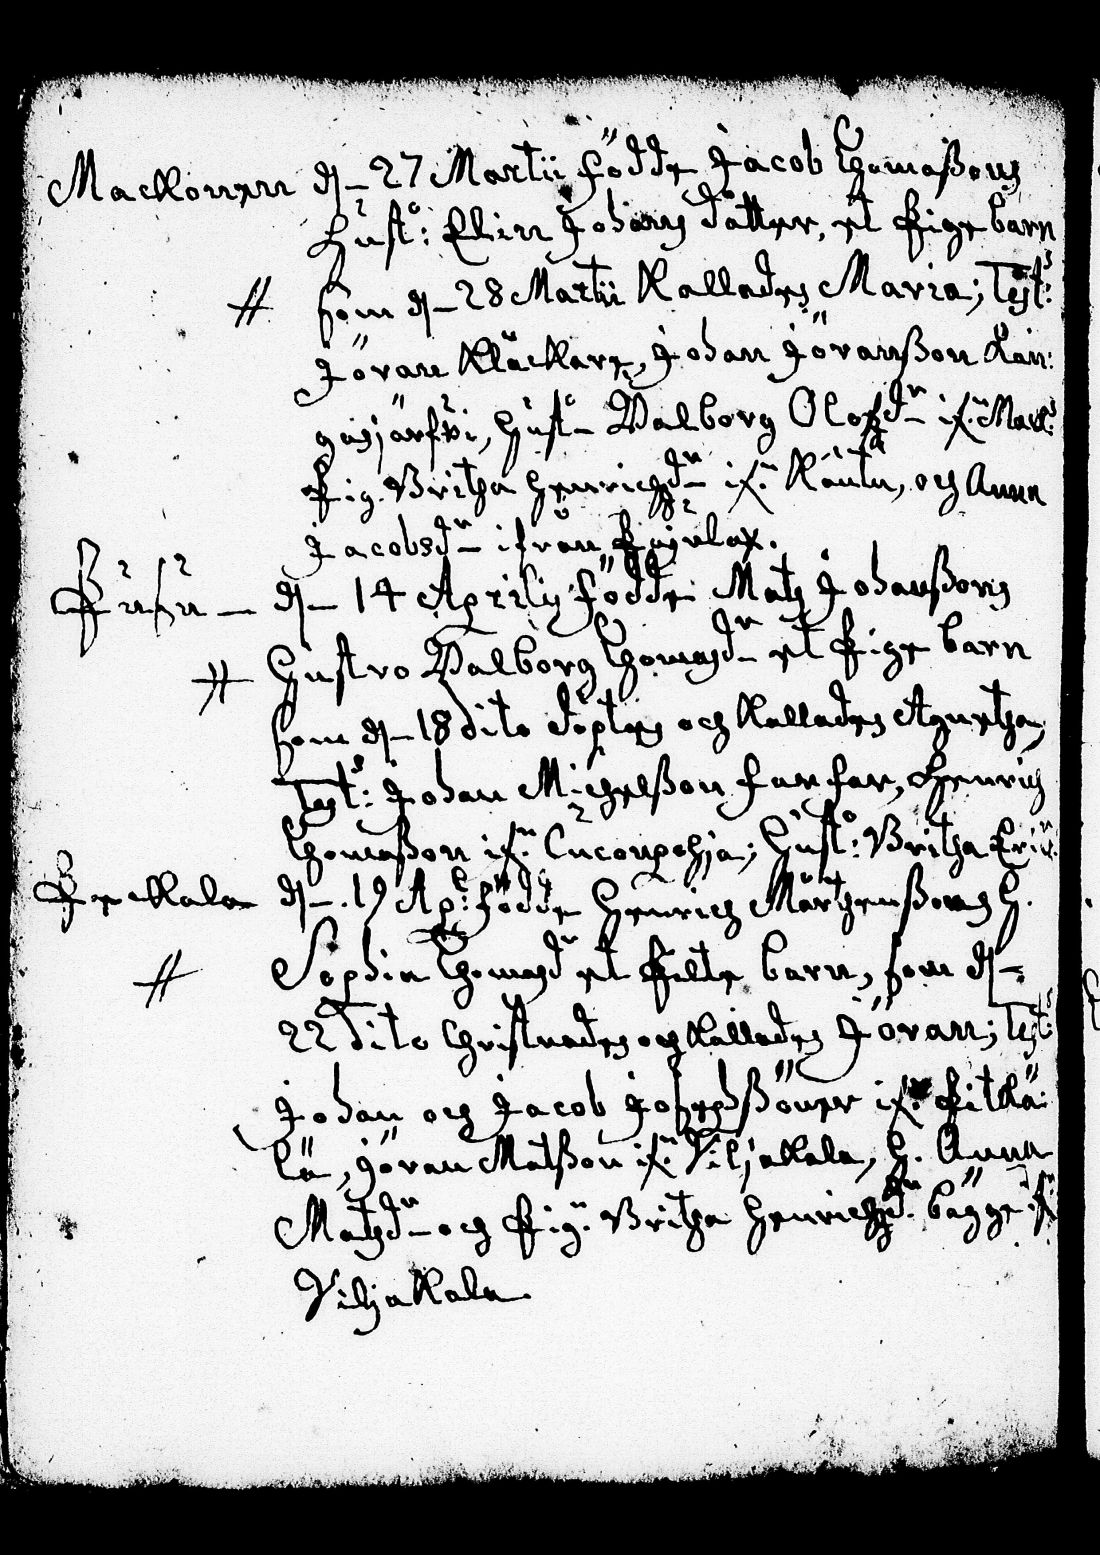 Mackonen d. 27 Martii födde Jacob Thomaßons
Hust: Elin Johans dotter, et Pige barn
# som d. 28 Martii Kallades Maria; Test:
Jöran Kläckare, Johan Jöranßon Kan:
gasjärfwi, Hust. Walborg Olofzdr if: Mack:
Pig. Britha Henrichzdr if: Räutu, och Anna
Jacobsdr ifrån
Pusu d. 14 Aprilis födde Matz Johanßons
# Hustro Walborg Thomasdr et Pige barn
som d. 18 dito döptes och Kallades Agnetha,
Test: Johan Michelßon farfar, Henrich
Thomaßon if: Hust: Britha Eric:
Peckala d. 19 Ap: födde Henrich Mårthenßons H.
# Sophia Thomasdr et Pilte barn, som d.
22 dito Christnades och Kallades Jöran; Test:
Johan och Jacob Josephßöner if: Pitkä:
lä, Jöran Matßon if: Viljakala, H. Anna
Matzdr och Pig: Britha Henrichzdr bägge if:
Viljakala.